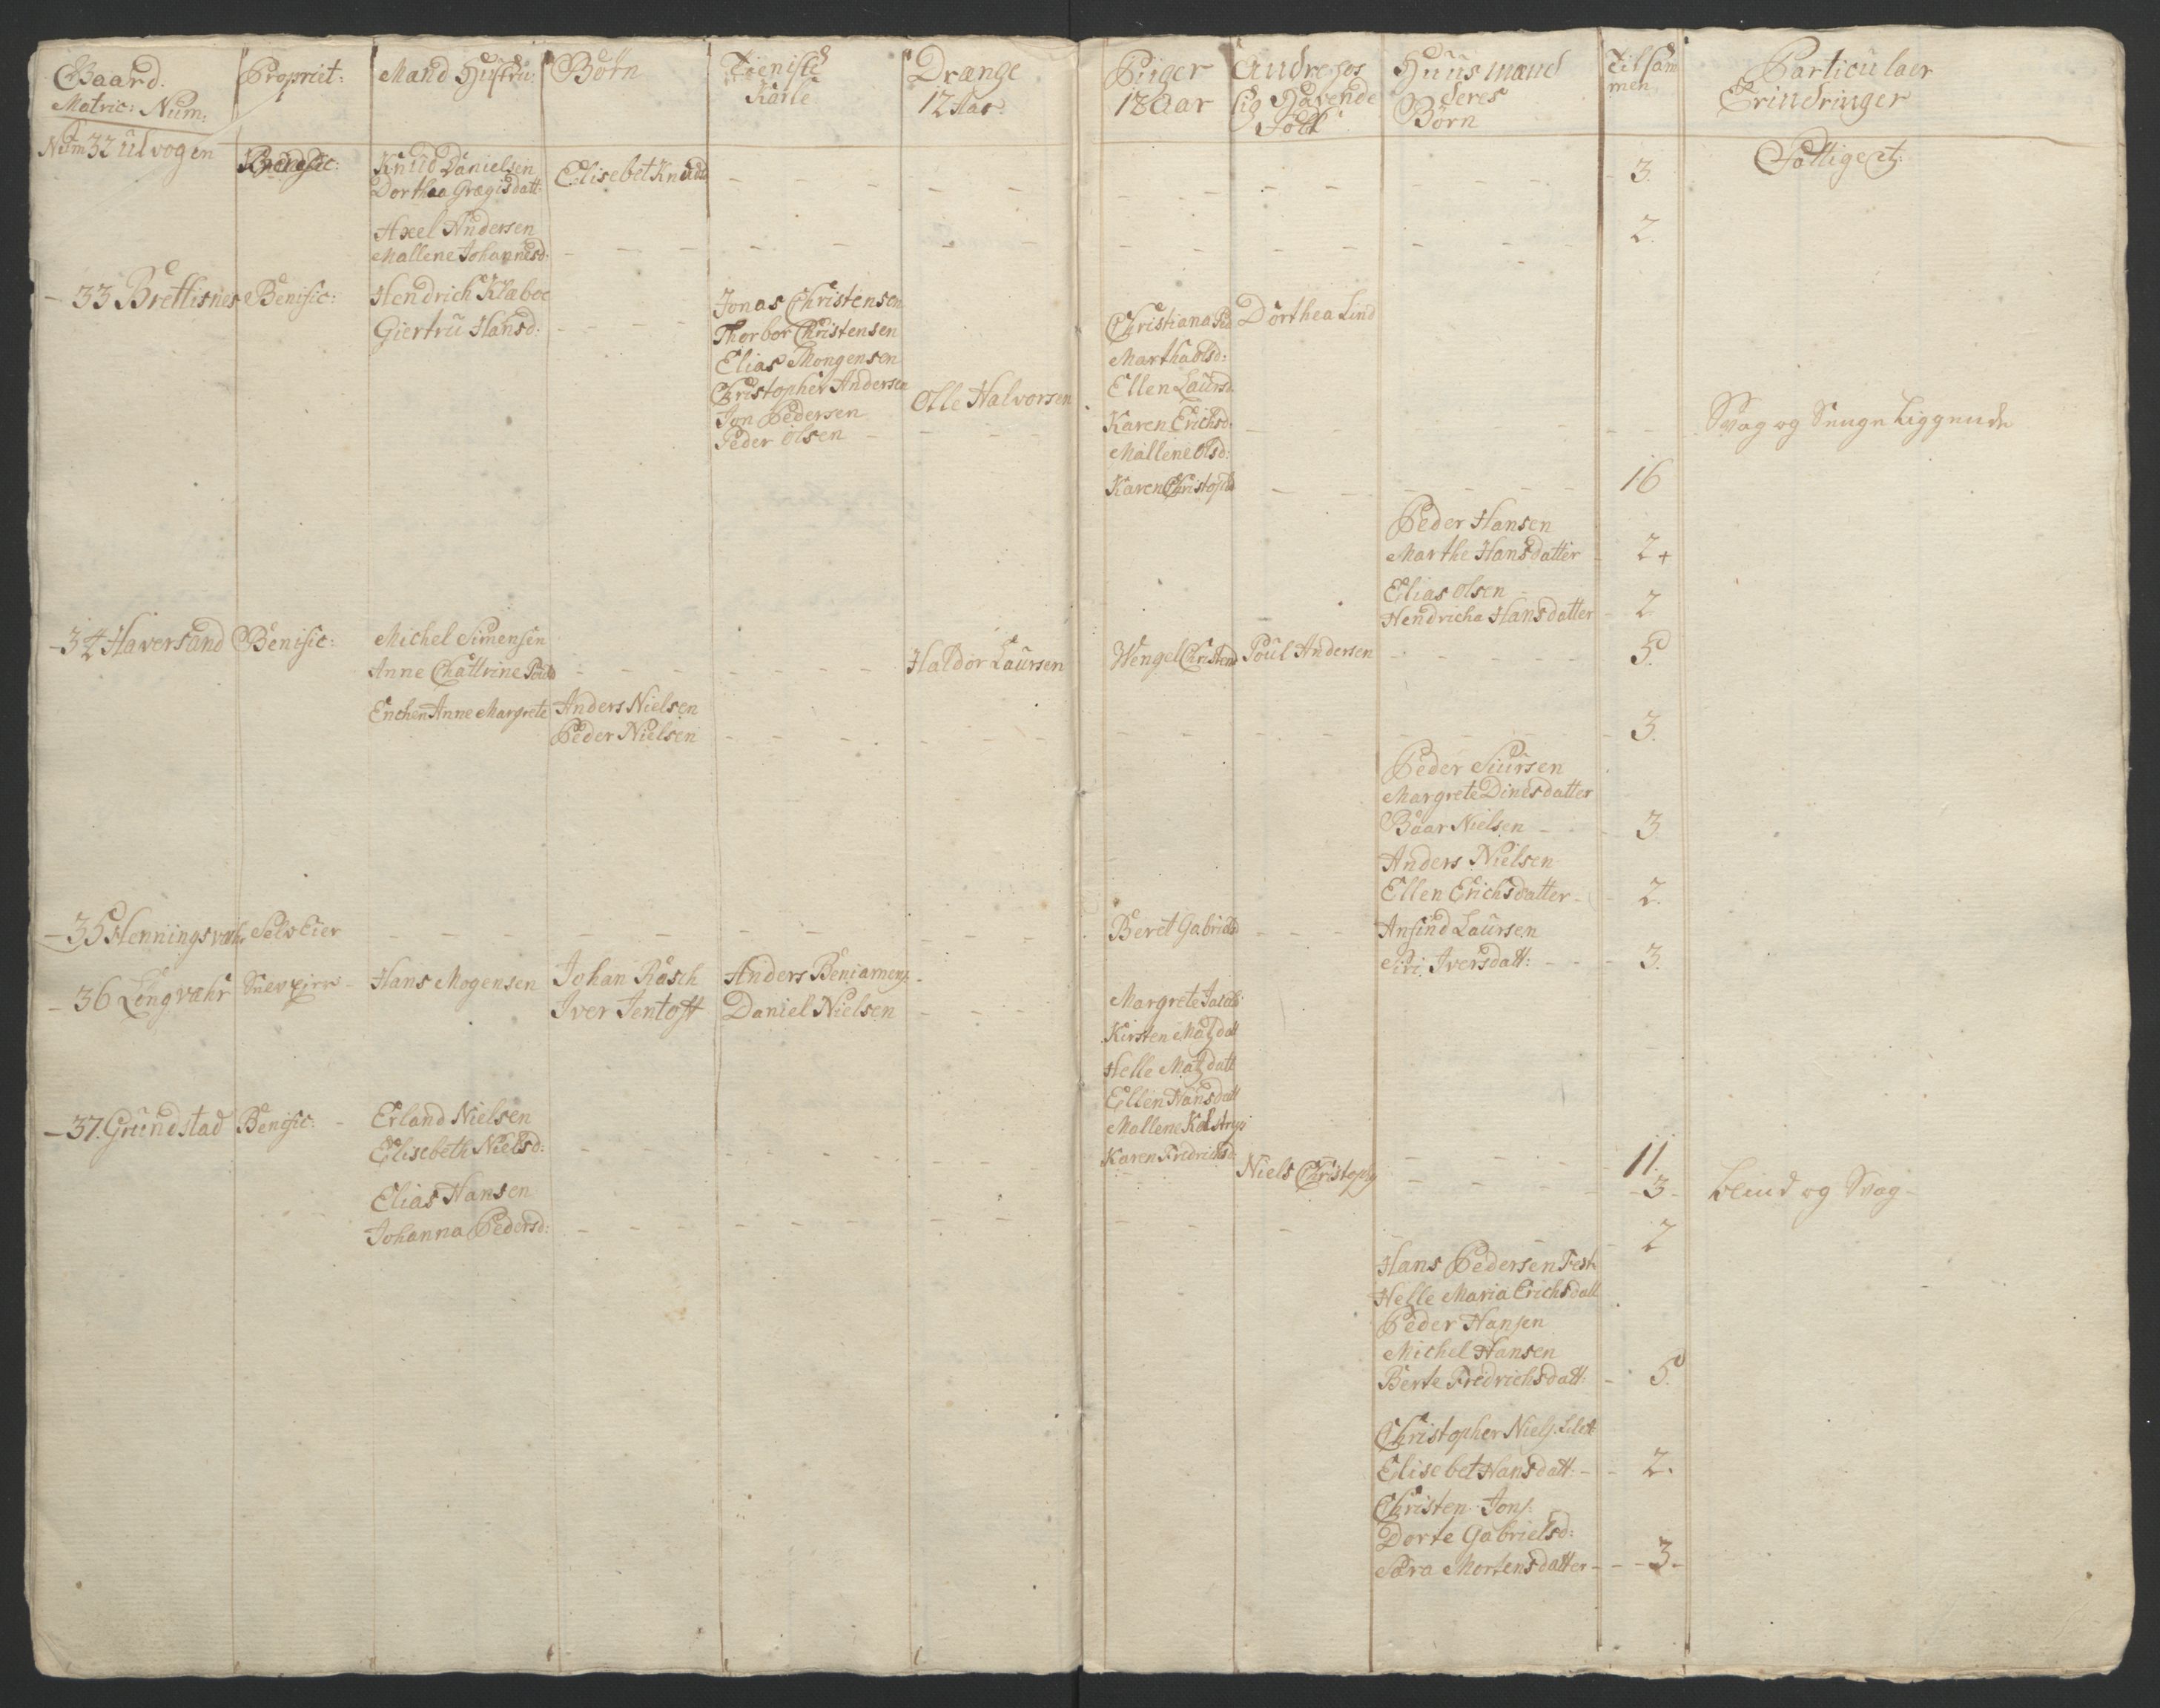 Gaard. Matric: Num:
Propriet:
Mand Hustru:
Börn
Tieniste Karle
Drænge 12 Aar
Piiger 12 Aar
Andre hos sig Havende Folk
Huusmænd deres Börn
Tilsammen
Particulaer Erindringer
Num 32 Ulvogen
Knud Danielsen Elisebet Knudsd - - - - 3. Fattige
Dorthea Gregisdatt:
Axel Andersen
Mallene Johannesd: - - - - 2.
- 33 Brettisnes Benific: Hendrich Klæboe
Giertru Hansd: - - -
Jonas Christensen
Thorbor Christensen
Elias Mongensen
Christopher Andersen
Jon Pedersen
Peder Olsen
Olle Halvorsen
Christiana Ped Dorthea Lind
Martha Olsd:
Ellen Laursd.
Karen Erichsd. - - - Svag og Senge Liggende
Mallene Olsd:
Karen Christophd - - - 16
Peder Hansen
Marthe Hansdatter 2 +
Elias Olsen
Hendricha Hansdatter 2
- 34 Haversand Benific: Michel Simensen
Anne Chattrine Pouls - - - Haldor Laursen Wengel Christend Poul Andersen - - - 5.
Enchen Anne Margrete Anders Nielsen
Peder Nielsen - - - 3.
Peder Siursen
Margrete Dinesdatter
Baar Nielsen - 3
Anders Nielsen
Ellen Erichsdatter - 2.
- 35 Henningsvæhr Selv Eier - - - Beret Gabrielsd - - - Ansind Laursen
Siri Iversdatt: - - 3.
- 36 Lengvæhr Hans Mogensen Johan Rasch Anders Beniamens: -
Iver Jentoft Daniel Nielsen - - -
Margrete Jacobs
Kirsten Matzdatt
Helle Matzdatt
Ellen Hansdatt
Mallene Kelstrup
Karen Fredrichsd - - - 11.
- 37. Grundstad Benific: - Erland Nielsen
Elisebeth Nielsd: - - - Niels Christophs - - - - 3 - blind og Svag -
Elias Hansen
Johanna Pedersd: - - - 2
Hans Pedersen
Helle Maria Erichsdatt
Peder Hansen
Michel Hansen
Berte Fredrichsdatt: - 5.
Christopher Niels.
Elisebet Hansdatt: - - 2.
Christen Jons:
Dorte Gabrielsd:
Sara Mortensdatter - - - 3 -